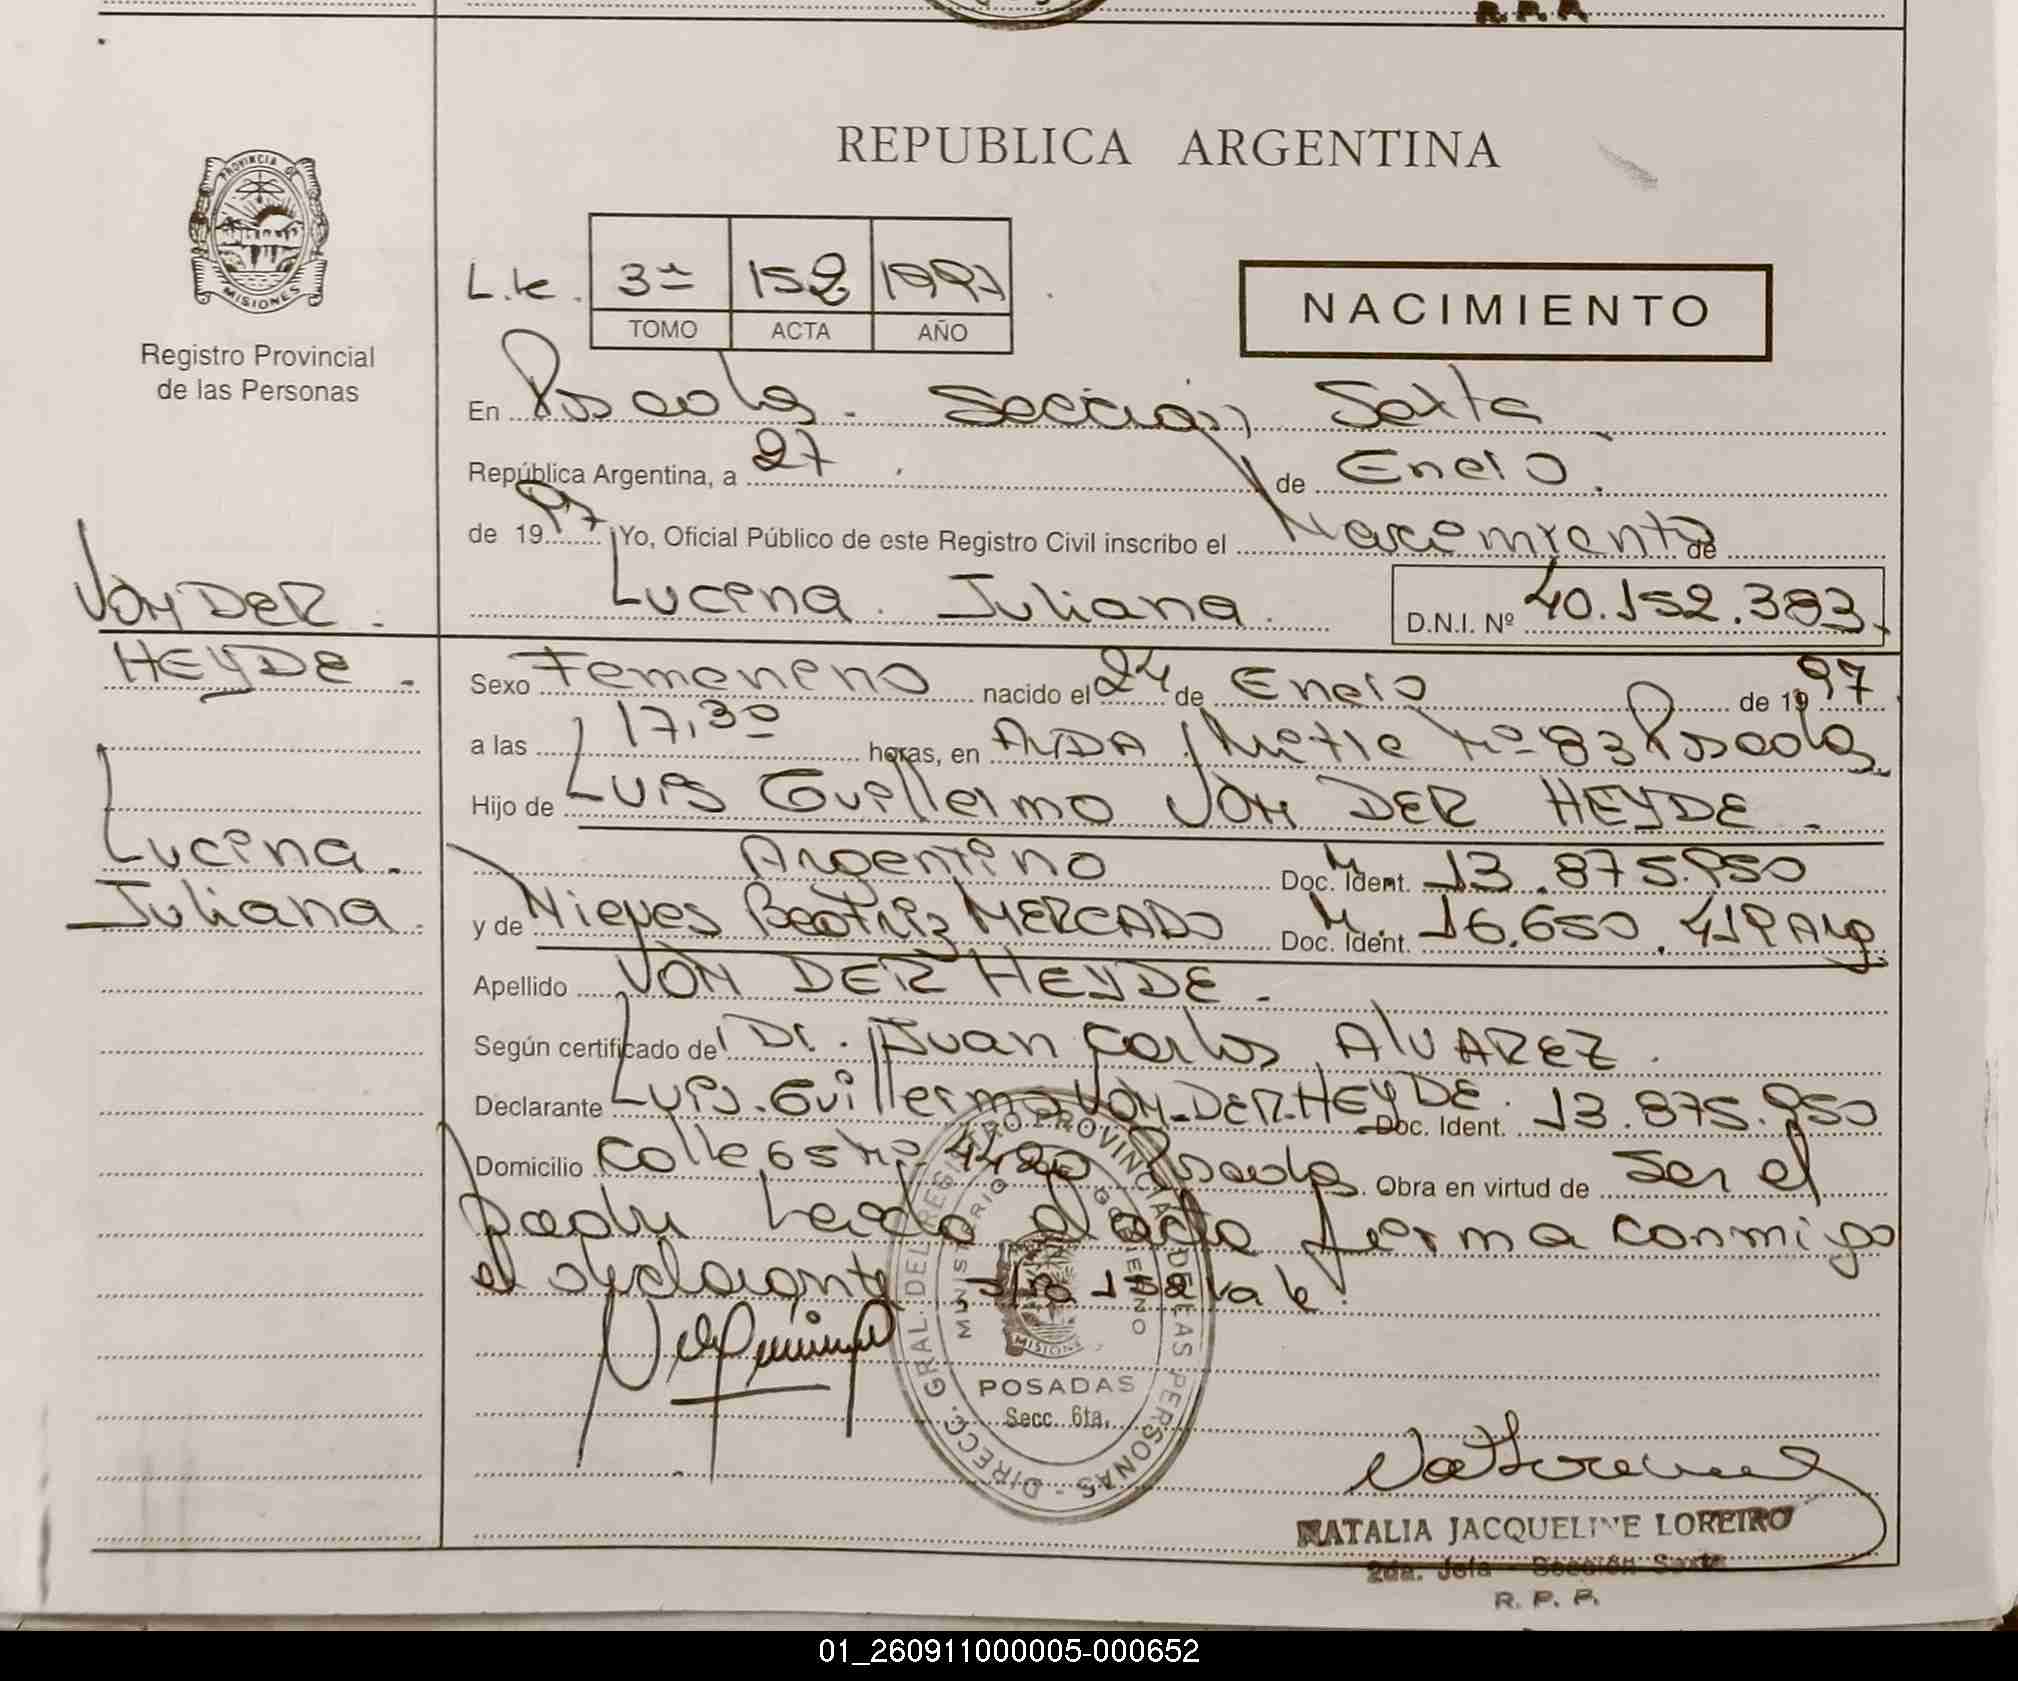 R. P. P.
PROVINCIA DE
MISIONES
Registro Provincial
de las Personas
REPUBLICA ARGENTINA
3ª 152 1997
TOMO ACTA AÑO
NACIMIENTO
En Posadas. Sección Sexta
República Argentina, a 27 de Enero.
de 1997 Yo, Oficial Público de este Registro Civil inscribo el Nacimiento de
Lucina Juliana. D.N.I. Nº 40.152.383.
VON DER
HEYDE.
Lucina.
Juliana.
Sexo Femenino nacido el 24 de Enero de 1997
a las 17,30 horas, en AVDA. Mitre Nº 83 Posadas
Hijo de Luis Guillermo VON DER HEYDE.
Argentino Doc. Ident. M. 13.875.950
y de Nieves Beatriz MERCADO Doc. Ident. M. 16.650.419 Arg.
Apellido VON DER HEYDE.
Según certificado de Dr. Juan Carlos ALVAREZ.
Declarante Luis Guillermo VON-DER-HEYDE. Doc. Ident. 13.875.950
Domicilio Calle 65 Nº 4420 Posadas. Obra en virtud de ser el
padre Leída el acta firma conmigo
el declarante 152 vale.
DIRECC. GRAL. DEL REGISTRO PROVINCIAL DE LAS PERSONAS
MINISTERIO GOBIERNO
MISIONES
POSADAS
Secc. 6ta.
NATALIA JACQUELINE LOREIRO
2da. Jefa - Sección Sexta
R. P. P.
01_260911000005-000652